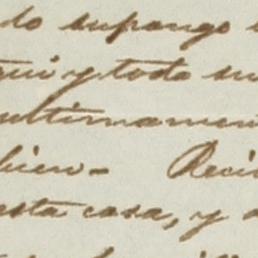 lo supongo
y todo su
ultimamen
bien- Reci
esta casa, y a